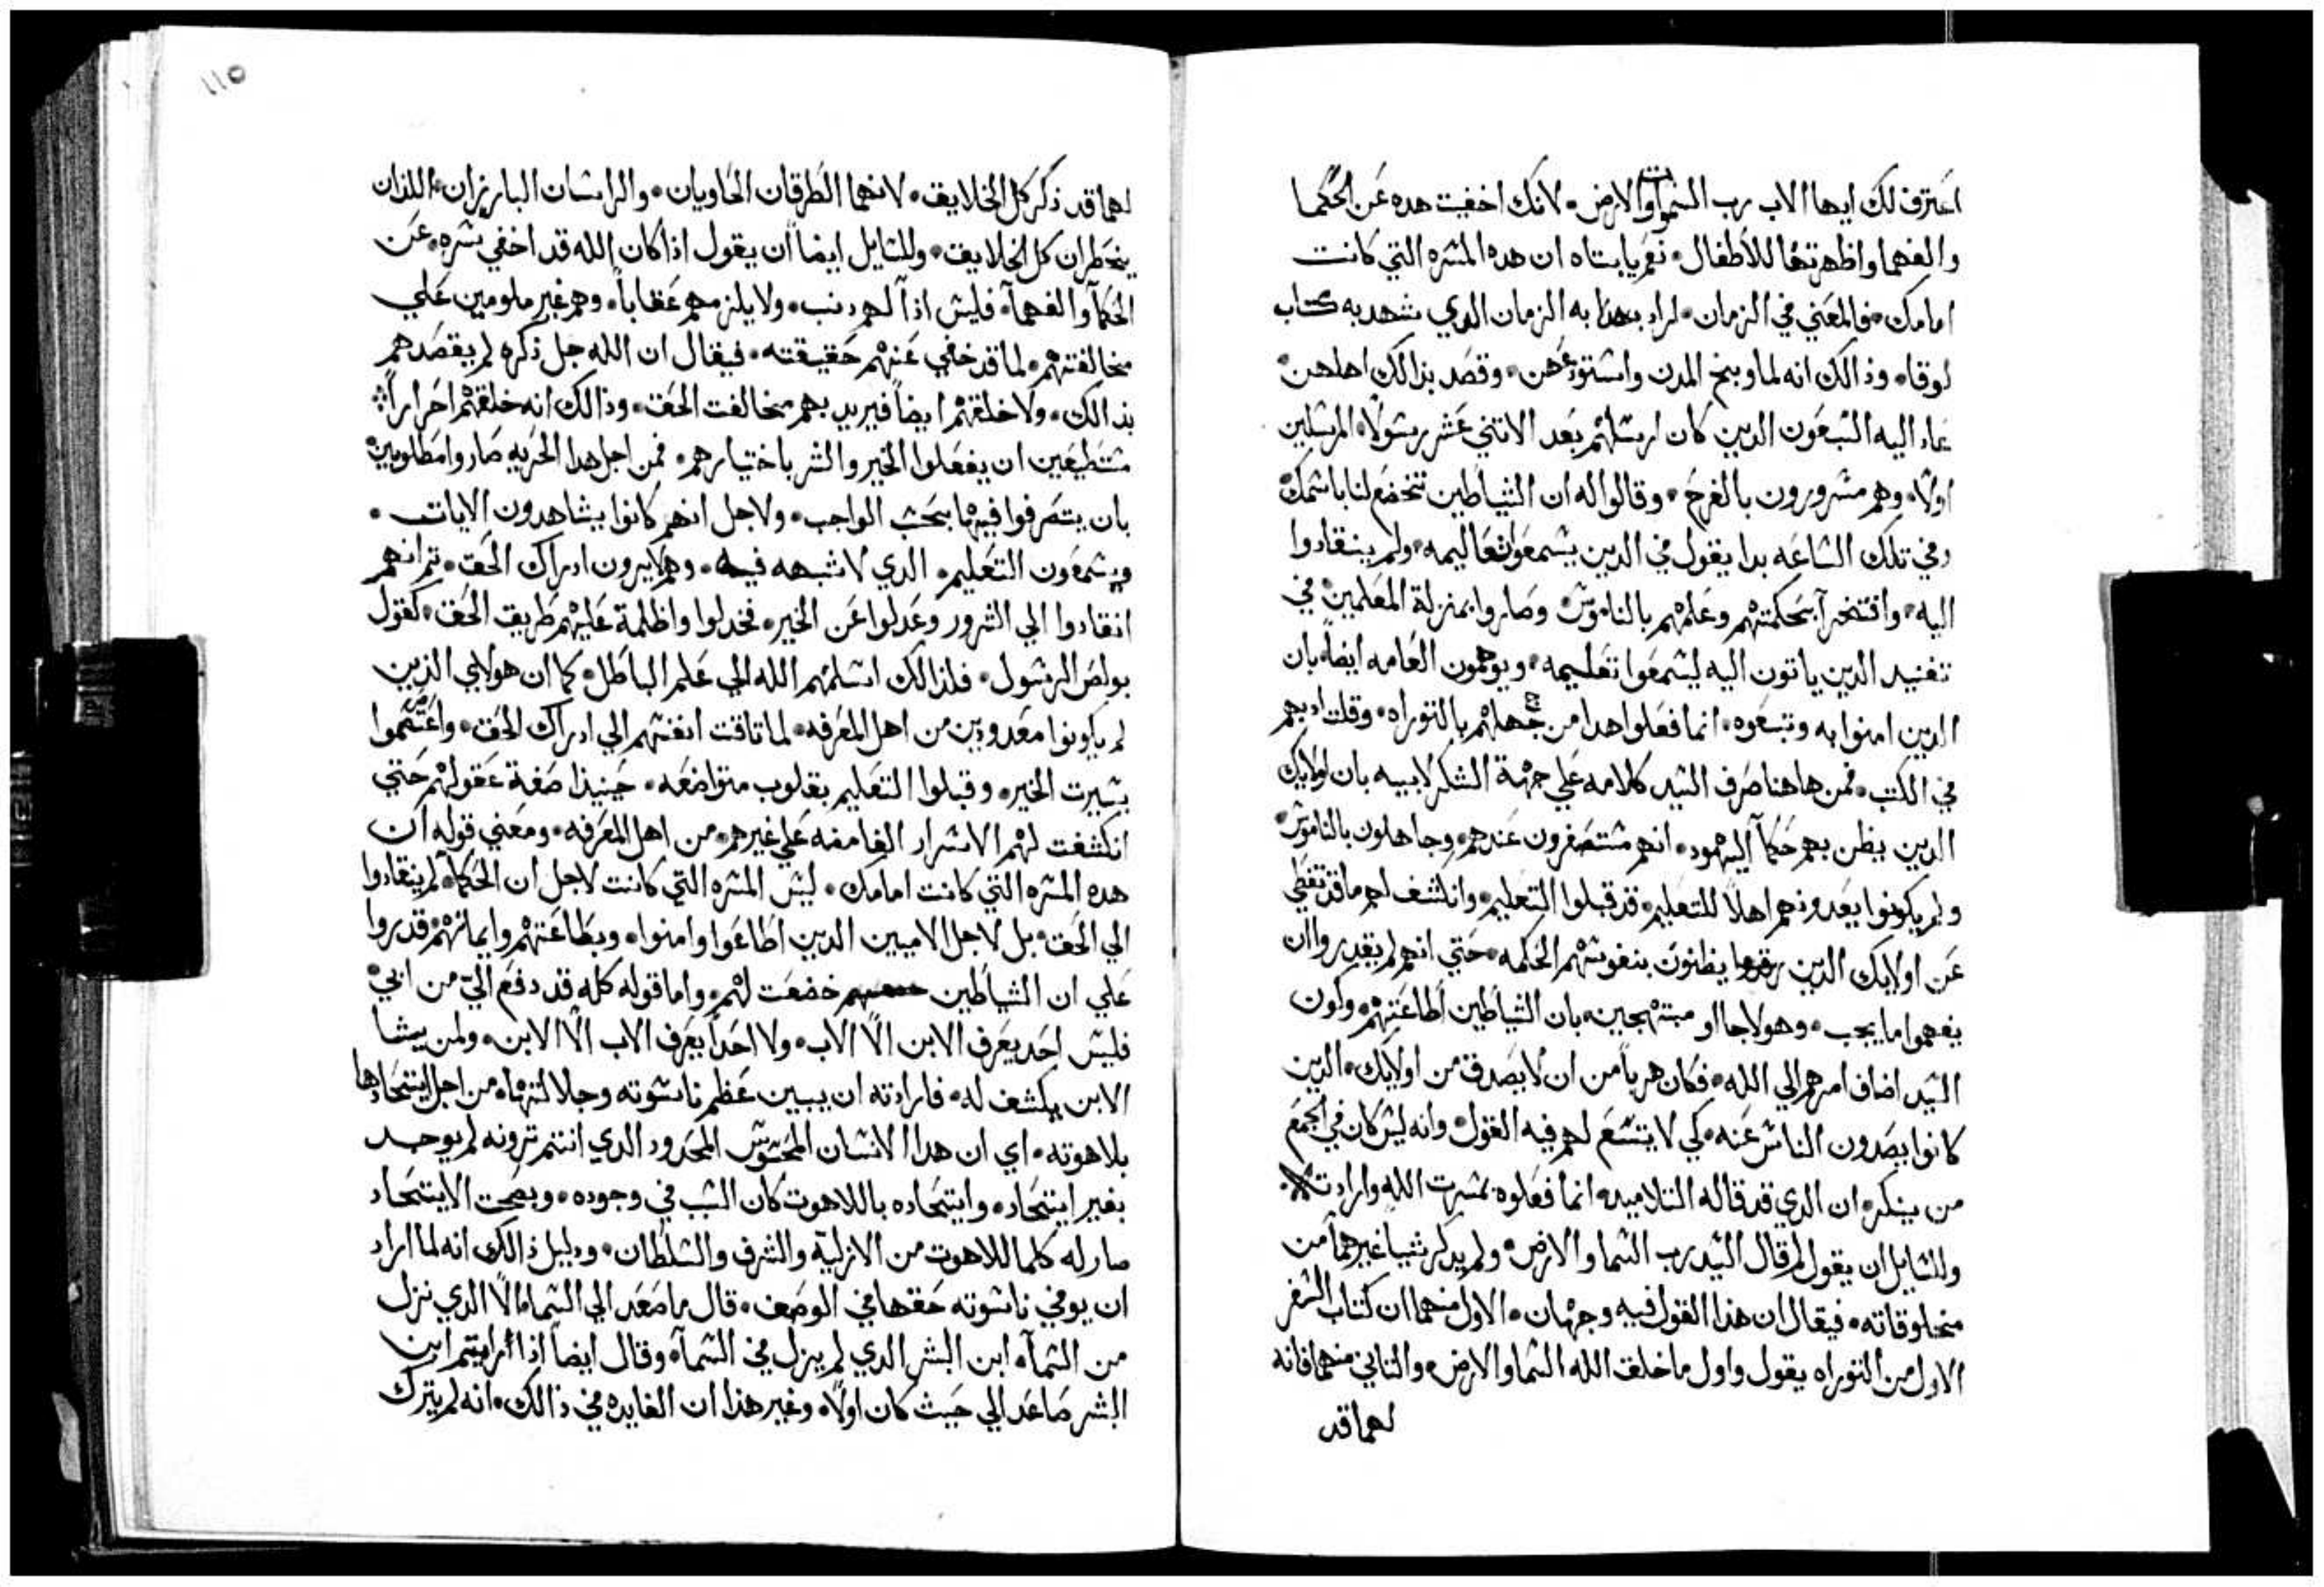 اعترف لك ايها الاب رب السموات والارض ٠ لانك اخفيت هده عن الحكما
والفهما واظهرتها للاطفال ٠ نعم يا ابتاه ان هده المسره التي كانت
امامك ٠ فالمعني في الزمان ٠ اراد بهدا به الزمان الدي شهد به كتاب
لوقا ٠ وذالك انه لما وبخ المدن واستودعهن ٠ وقصد بذالك اهلهن ٠
عاد اليه السبعون الدين كان ارسلهم بعد الاتني عشر رسولا المرسلين
اولا ٠ وهم مسرورون بالفرح ٠ وقالوا له ان الشياطين تخضع لنا باسمك ٠
وفي تلك الساعه بدا يقول في الدين يسمعوا تعاليمه ٠ ولم ينقادوا
اليه ٠ وافتخرا بحكمتهم وعلمهم بالناموس ٠ وصاروا بمنزلة المعلمين في
تفنيد الدين ياتون اليه ليسمعوا تعليمه ٠ ويوهمون العامه ايضا بان
الدين امنوا به وتبعوه ٠ انما فعلوا هدا من جهلهم بالتوراه ٠ وقلت ادبهم
في الكتب ٠ فمن هاهنا صرف السيد كلامه علي جهة الشكر لابيه بان اولايك
الدين يظن بهم حكما اليهود ٠ انهم مستصغرون عندهم ٠ وجاهلون بالناموس ٠
ولم يكونوا يعدونهم اهلا للتعليم ٠ قد قبلوا التعليم ٠ وانكشف لهم ما قد تغطي
عن اولايك الدين يظنون بنفوسهم الحكمه ٠ حتي انهم لم يقدروا ان
يفهموا ما يجب ٠ وهولا جااو مبتهجين ٠ بان الشياطين اطاعتهم ٠ ولكون
السيد اضاف امرهم الي الله ٠ فكان هربا من ان لا يصدق من اولايك ٠ الدين
كانوا يصدون الناس عنه ٠ كي لا يتسع لهم فيه القول ٠ وانه ليس كان في الجمع
من ينكر ٠ ان الدي قد قاله التلاميد ٠ انما فعلوه بمسرت الله وارادته ٠
وللسايل ان يقول لم قال السيد رب السما والارض ٠ ولم يدكر شيا غيرهما من
مخلوقاته ٠ فيقال ان هذا القول فيه وجهان ٠ الاول منهما ان كتاب السفر
الاول من التوراه يقول واول ما خلق الله السما والارض ٠ والتاني منهما فانه
لهما قد
١١٥
لهما قد ذكر كل الخلايق ٠ لانهما الطرفان الحاويان ٠ والراسان البارزان ٠ اللذان
يحطران كل الخلايق ٠ وللسايل ايضا ان يقول اذا كان الله قد اخفي سره ٠ عن
الحكما والفهما ٠ فليس اذا لهم دنب ٠ ولا يلزمهم عقابا ٠ وهم غير ملومين علي
مخالفتهم ٠ لما قد خفي عنهم حقيقته ٠ فيقال ان الله جل ذكره لم يقصدهم
بذالك ٠ ولا خلقهم ايضا فيريد بهم مخالفت الحق ٠ وذالك انه خلقهم احرارا
مستطيعين ان يفعلوا الخير والشر باختيارهم ٠ فمن اجل هدا الحريه صاروا مطلوبين
بان يتصرفوا فيهما بحسب الواجب ٠ ولاجل انهم كانوا يشاهدون الايات ٠
ويسمعون التعليم ٠ الدي لا شبهه فيه ٠ وهم لا يرون ادراك الحق ٠ تم انهم
انقادوا الي الشرور وعدلوا عن الخير ٠ فخدلوا واظلمة عليهم طريق الحق ٠ كقول
بولص الرسول ٠ فلذالك اسلمهم الله الي علم الباطل ٠ كما ان هولاي الذين
لم يكونوا معدودين من اهل المعرفه ٠ لما تاقت انفسهم الي ادراك الحق ٠ واعتصموا
بسيرت الخير ٠ وقبلوا التعليم بقلوب متواضعه ٠ حينيذا صفة عقولهم حتي
انكشفت لهم الاسرار الغامضه علي غيرهم ٠ من اهل المعرفه ٠ ومعني قوله ان
هده المسره التي كانت امامك ٠ ليس المسره التي كانت لاجل ان الحكما لم ينقادوا
الي الحق ٠ بل لاجل الاميين الدين اطاعوا وامنوا ٠ وبطاعتهم وايمانهم قدروا
علي ان الشياطين خضعت لهم ٠ واما قوله كله قد دفع الي من ابي ٠
فليس احد يعرف الابن الا الاب ٠ ولا احدا يعرف الاب الا الابن ٠ ولمن يشا
الابن يكشف له ٠ فارادته ان يبين عظم ناسوته وجلالتها ٠ من اجل ايتحادها
بلاهوته ٠ اي ان هدا الانسان المحسوس المحدود الدي انتم ترونه لم يوجد
بغير ايتحاد ٠ وايتحاده باللاهوت كان السبب في وجوده ٠ وبصحت الايتحاد
صار له كلما للاهوت من الازلية والشرف والسلطان ٠ ودليل ذالك انه لما اراد
ان يوفي ناسوته حقها في الوصف ٠ قال ما صعد الي السما الا الدي نزل
من السما ٠ ابن البشر الدي لم يزل في السما ٠ وقال ايضا اذا رايتم ابن
البشر صاعد الي حيث كان اولا ٠ وغير هذا ان الفايده في ذالك ٠ انه لم يترك